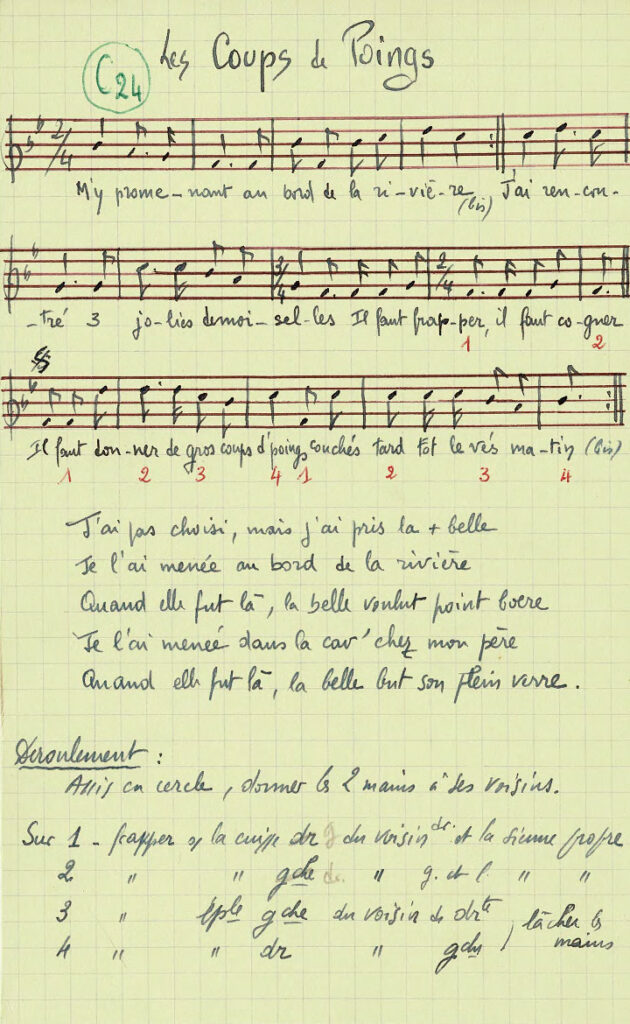 Les Coups de Poings
C24
2/4
M'y prome-nant au bord de la ri-viè-re (bis) J'ai ren-con-
-tré 3 jo-lies demoi-sel-les Il faut frap-per, il faut co-gner
3/4 2/4
1 2
Il faut don-ner de gros coups d'poings couchés tard tot le vés ma-tin (bis)
1 2 3 4 1 2 3 4
J'ai pas choisi, mais j'ai pris la + belle
Je l'ai menée au bord de la rivière
Quand elle fut là, la belle voulut point boere
Je l'ai menée dans la cav' chez mon père
Quand elle fut là, la belle but son plein verre.
Déroulement :
Assis en cercle, donner les 2 mains à ses voisins.
Sur 1 - frapper sr la cuisse dr du voisin dr. et la sienne propre
2 " " gche " g. et l. " "
3 " éple gche du voisin de drte
4 " " dr " gche
lâcher les
mains